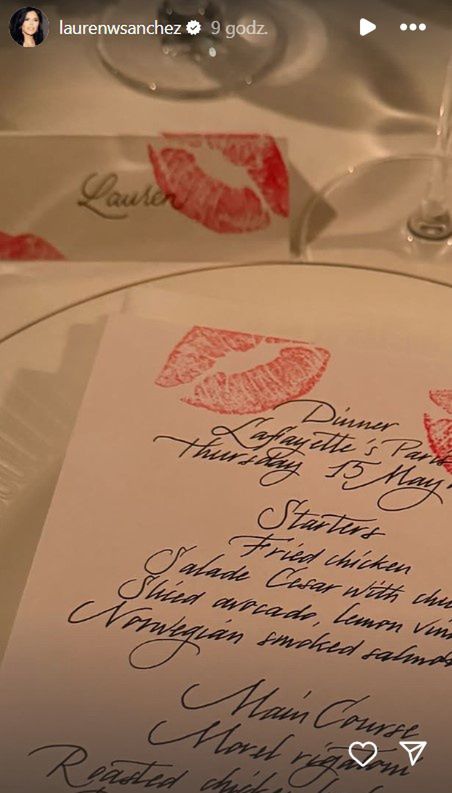 laurenwsanchez 9 godz.
Lauren
Dinner
Lafayette's Paris
Thursday 15 May
Starters
Fried chicken
Salade Cesar with
Sliced avocado, lemon
Norwegian smoked
Main Course
Morel rigatoni
Roasted chicken